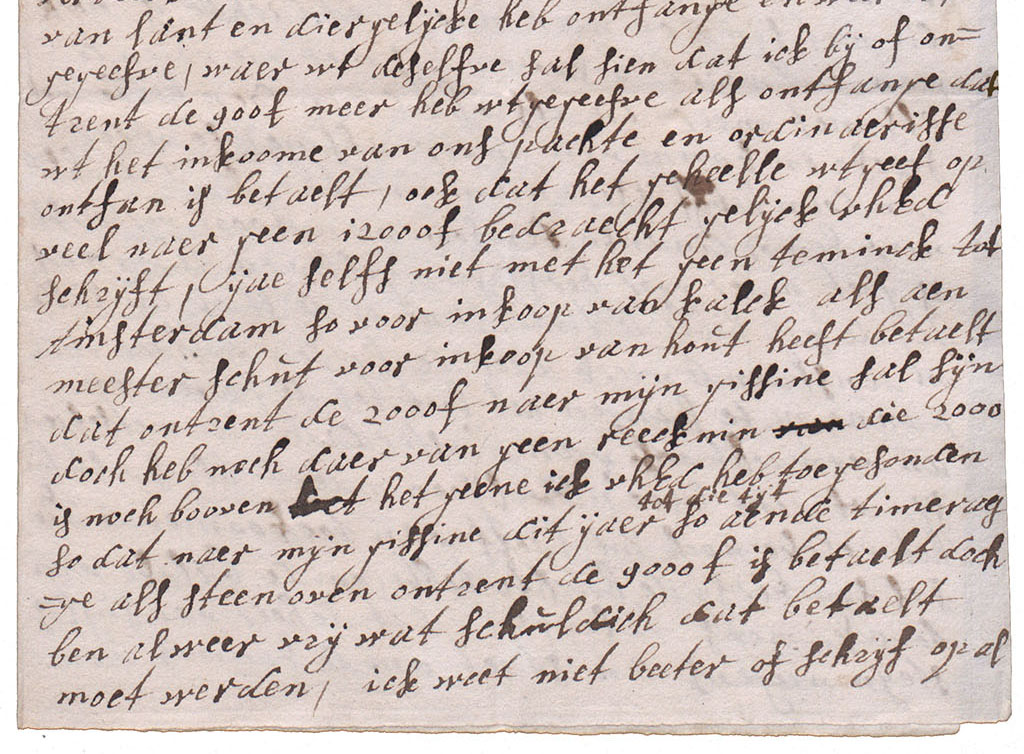 van lant en diergelijcke heb ontfange en
gegeefve, waer wt deselfve sal sien dat ick bij of om=
trent de 900f meer heb wtgegeefve als ontfange dat
wt het inkoome van ons pachte en ordinaerisse
ontfan is betaelt, ock dat het geheelle wtgeef op
veel naer geen 12000f bedraecht gelijck vhEd
schrijft, jae selfs niet met het geen teminck tot
Amsterdam so voor inkoop van kalck als aen
meester schut voor inkoop van hout heeft betaelt
dat ontrent de 2000f naer mijn gissine sal sijn
doch heb noch daer van geen reecknin van die 2000
is noch booven het het geene ick vhEd heb toegesonden
tot die tijt
so dat naer mijn gissine dit jaer so aende timerag
=ge als steenoven ontrent de 9000f is betaelt doch
ben alweer vrij wat schuldich dat betaelt
moet werden, ick weet niet beeter of schrijf op al